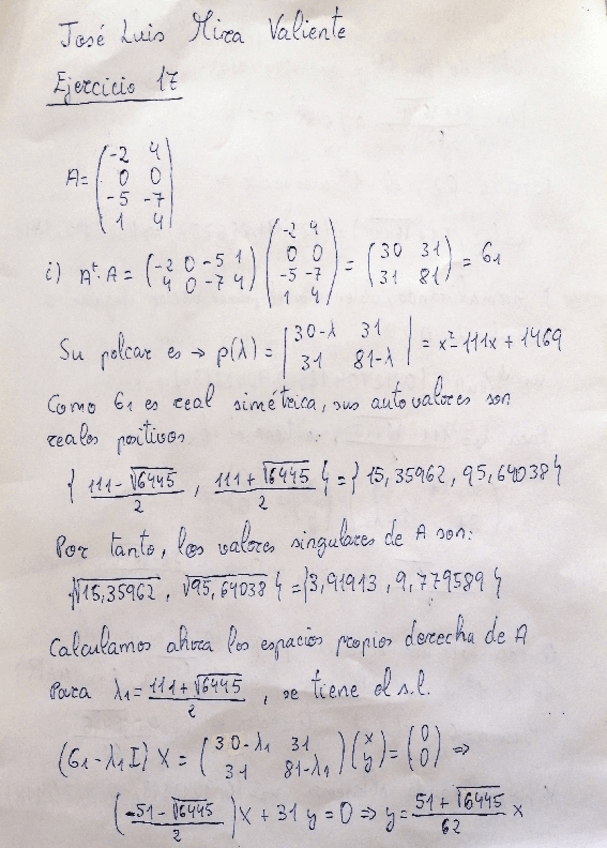 José Luis Mira Valiente
Ejercicio 17
A = (-2 4 / 0 0 / -5 -7 / 1 4)
i) Aᵗ·A = (-2 0 -5 1 / 4 0 -7 4) (-2 4 / 0 0 / -5 -7 / 1 4) = (30 31 / 31 81) = G₁
Su polcar es → p(λ) = |30-λ 31 / 31 81-λ| = x² - 111x + 1469
Como G₁ es real simétrica, sus autovalores son
reales positivos
{ (111-√6445)/2 , (111+√6445)/2 } = { 15,35962 , 95,64038 }
Por tanto, los valores singulares de A son:
{ √15,35962 , √95,64038 } = { 3,91913 , 9,779589 }
Calculamos ahora los espacios propios derecha de A
Para λ₁ = (111+√6445)/2 , se tiene el s.l.
(G₁-λ₁I) X = (30-λ₁ 31 / 31 81-λ₁) (x / y) = (0 / 0) ⇒
((-51-√6445)/2) x + 31 y = 0 ⇒ y = (51+√6445)/62 x